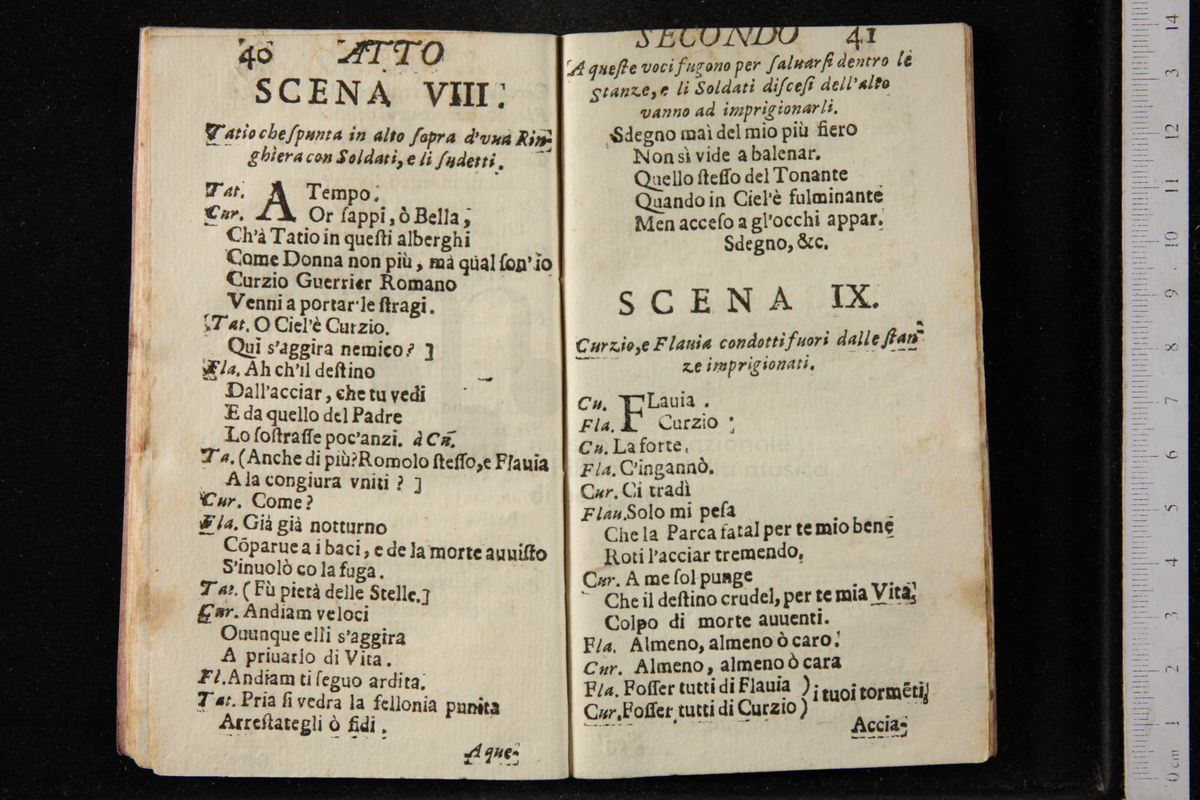 40 ATTO
SCENA VIII.
Tatio che ſpunta in alto ſopra d'vua Rin-
ghiera con Soldati, e li ſudetti.
Tat. A Tempo.
Cur. Or ſappi, ò Bella,
Ch'à Tatio in queſti alberghi
Come Donna non più, mà qual ſon'io
Curzio Guerrier Romano
Venni a portar le ſtragi.
[Tat. O Ciel'è Curzio.
Qui s'aggira nemico? ]
Fla. Ah ch'il deſtino
Dall'acciar, che tu vedi
E da quello del Padre
Lo ſoſtraſſe poc'anzi. à Cu.
Ta. (Anche di più? Romolo ſteſſo, e Flauia
A la congiura vniti? ]
Cur. Come?
Fla. Già già notturno
Cõparue a i baci, e de la morte auuiſto
S'inuolò co la fuga.
Tat. (Fù pietà delle Stelle.]
Cur. Andiam veloci
Ouunque elli s'aggira
A priuarlo di Vita.
Fl. Andiam ti ſeguo ardita.
Tat. Pria ſi vedra la fellonia punita
Arreſtategli ò fidi.
A que-
SECONDO 41
A queſte voci fugono per ſaluarſi dentro le
Stanze, e li Soldati diſceſi dell'alto
vanno ad imprigionarli.
Sdegno mai del mio più fiero
Non sì vide a balenar.
Quello ſteſſo del Tonante
Quando in Ciel'è fulminante
Men acceſo a gl'occhi appar.
Sdegno, &c.
SCENA IX.
Curzio, e Flauia condotti fuori dalle ſtan-
ze imprigionati.
Cu. FLauia.
Fla. Curzio;
Cu. La ſorte.
Fla. C'ingannò.
Cur. Ci tradì
Flau. Solo mi peſa
Che la Parca fatal per te mio bene
Roti l'acciar tremendo.
Cur. A me ſol punge
Che il deſtino crudel, per te mia Vita,
Colpo di morte auuenti.
Fla. Almeno, almeno ò caro.
Cur. Almeno, almeno ò cara
Fla. Foſſer tutti di Flauia ) i tuoi tormẽti,
Cur. Foſſer tutti di Curzio )
Accia-